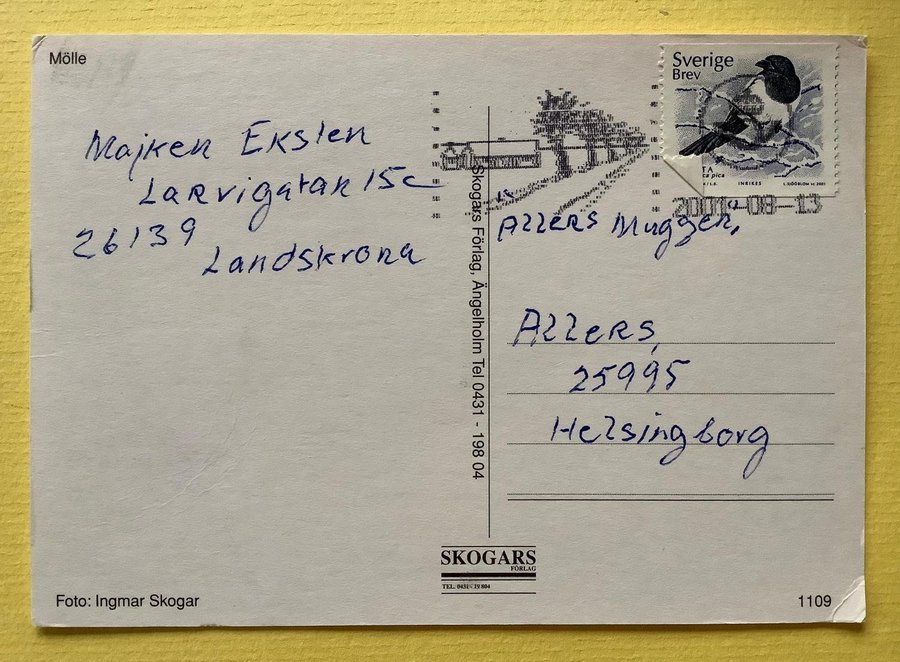 Mölle
Majken Eksten
Larvigatan 15c
26139
Landskrona
Foto: Ingmar Skogar
Skogars Förlag, Ängelholm Tel 0431 - 198 04
SKOGARS
FÖRLAG
TEL. 0431 - 19 804
Sverige
Brev
ca pica
INRIKES
L.SJÖÖBLOM sc 2001
2001-08-13
Allers Muggen,
Allers,
25995
Helsingborg
1109